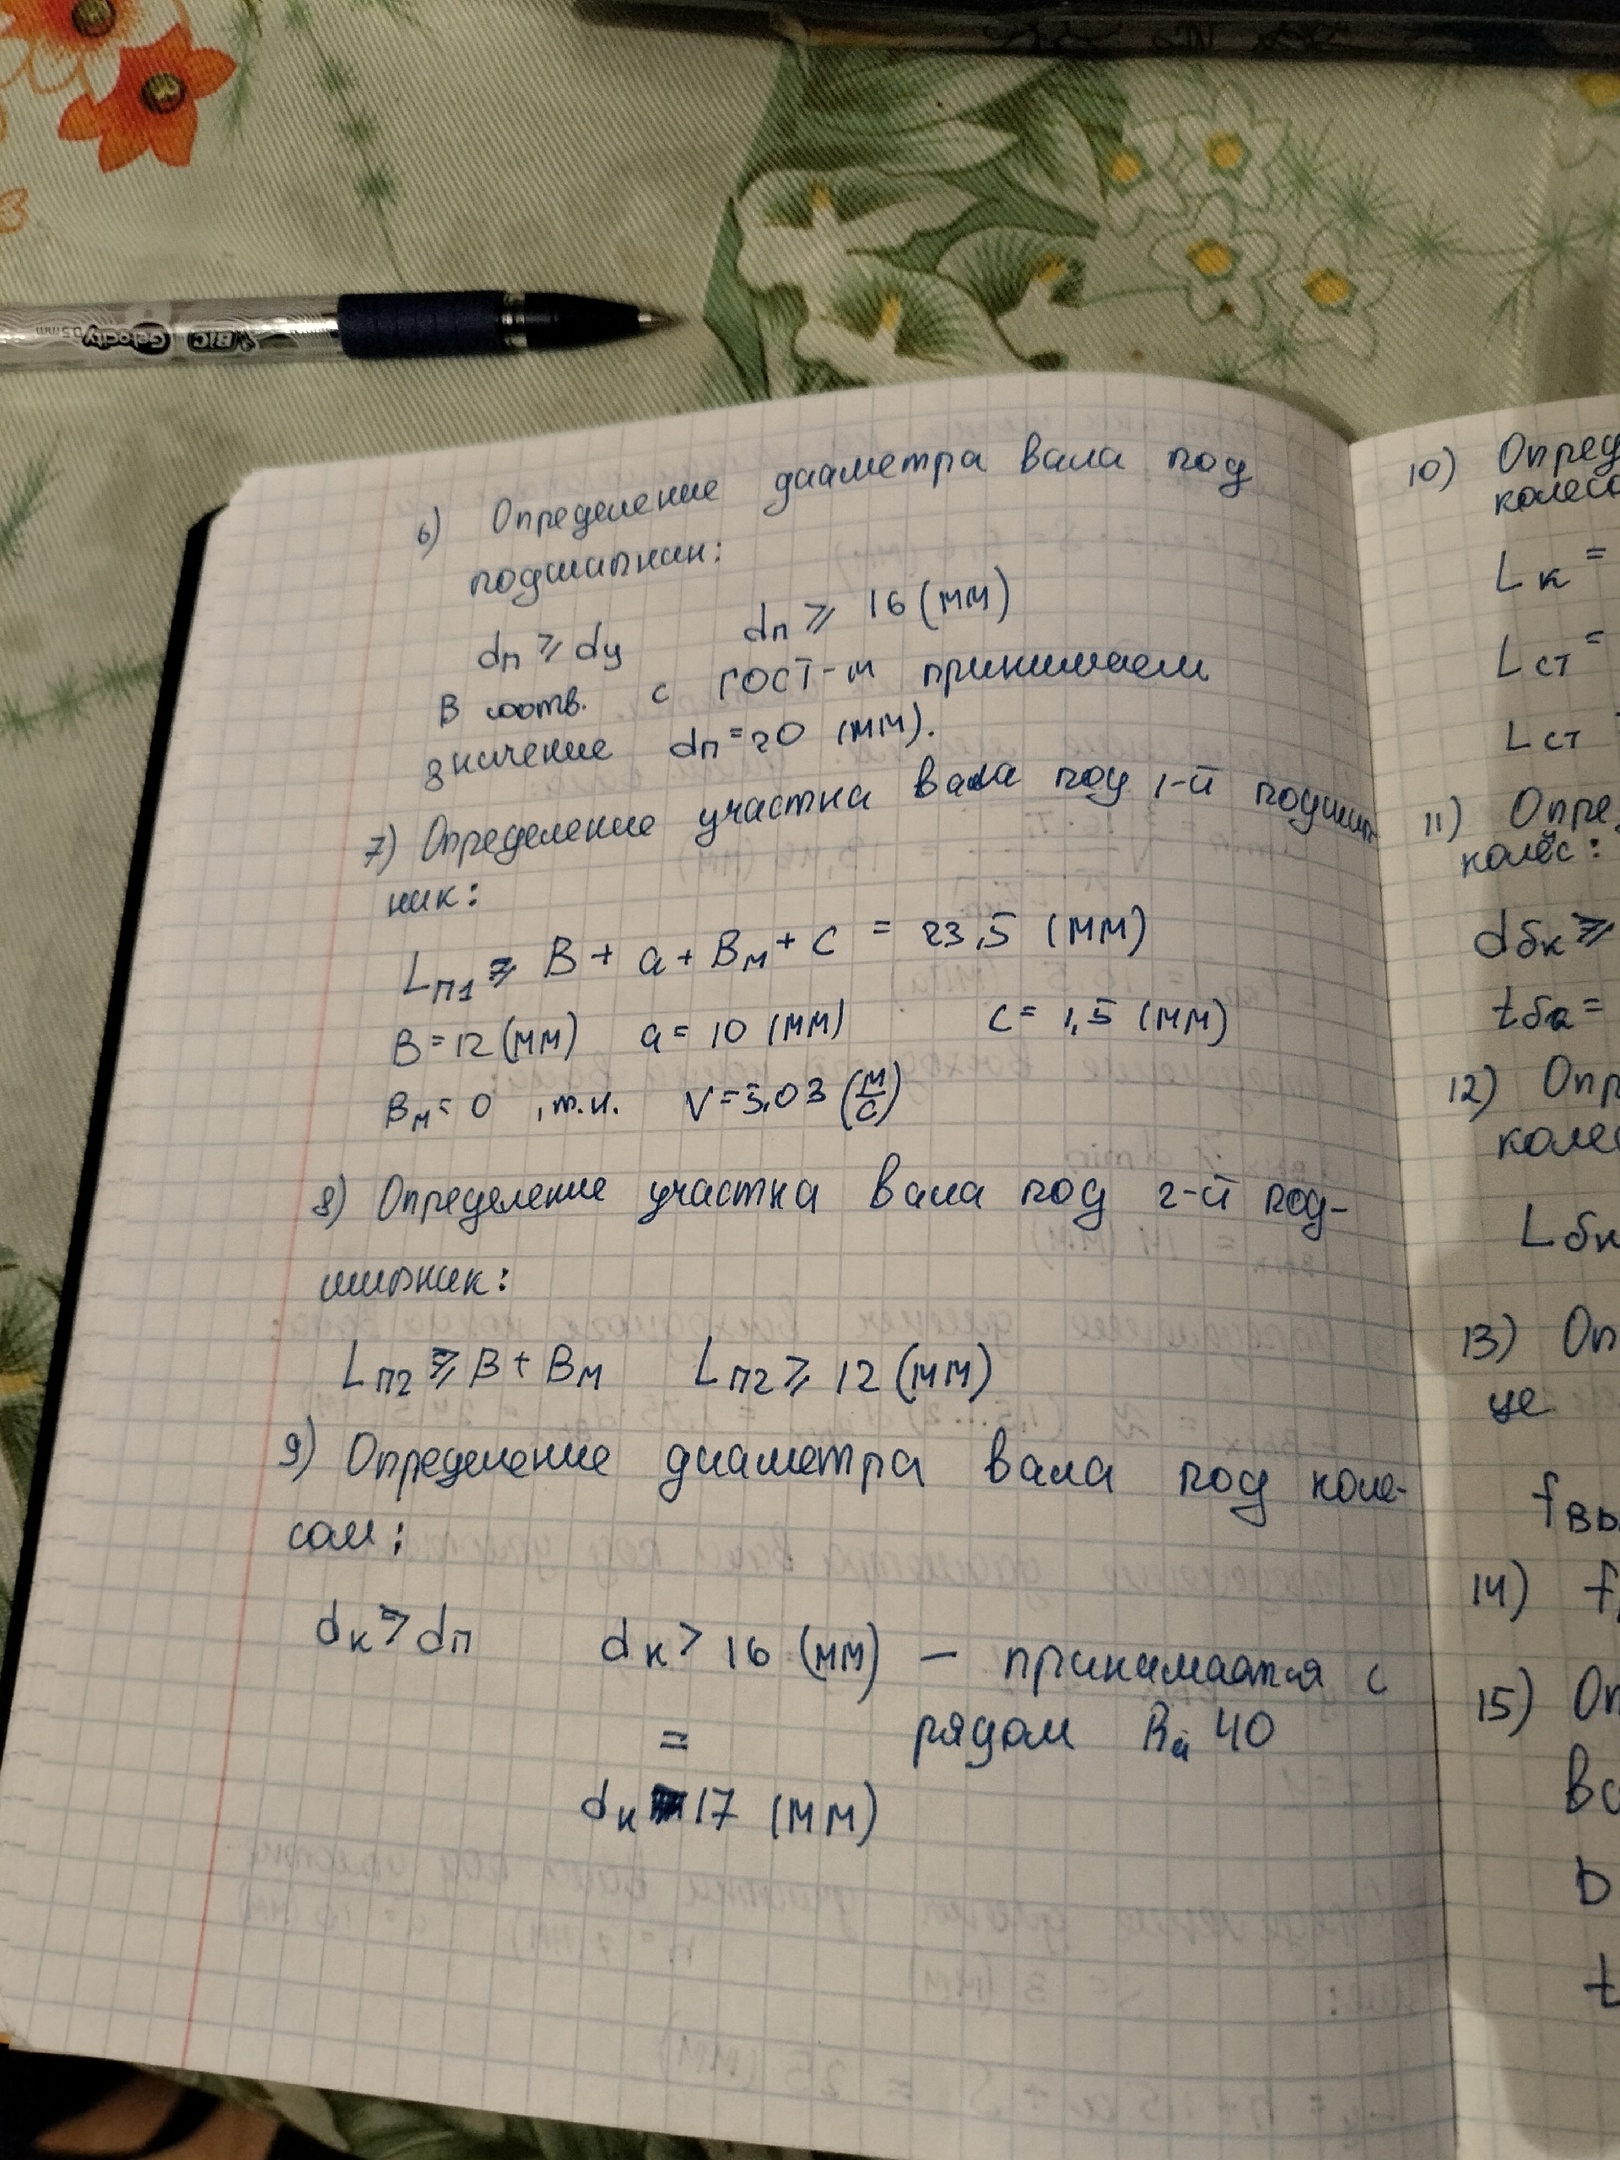 BIC Gelocity 0.5mm
6) Определение диаметра вала под
подшипник:
dп ⩾ dу dп ⩾ 16 (мм)
В соотв. с ГОСТ-м принимаем
значение dп = 20 (мм).
7) Определение участка вала под 1-й подшип-
ник:
Lп1 ⩾ B + a + Bм + C = 23,5 (мм)
B = 12 (мм) a = 10 (мм) C = 1,5 (мм)
Bм = 0 , т.к. V = 3,03 (м/с)
8) Определение участка вала под 2-й под-
шипник:
Lп2 ⩾ B + Bм Lп2 ⩾ 12 (мм)
9) Определение диаметра вала под коле-
сом:
dк ⩾ dп dк > 16 (мм) — принимается с
= рядом Ra 40
dк 17 (мм)
10) Опред
колесо
Lк =
Lст =
Lст
11) Опре
колёс:
dбк ⩾
tбк =
12) Опр
колес
Lбк
13) Оп
це
fвы
14) f
15) Оп
ва
b
t